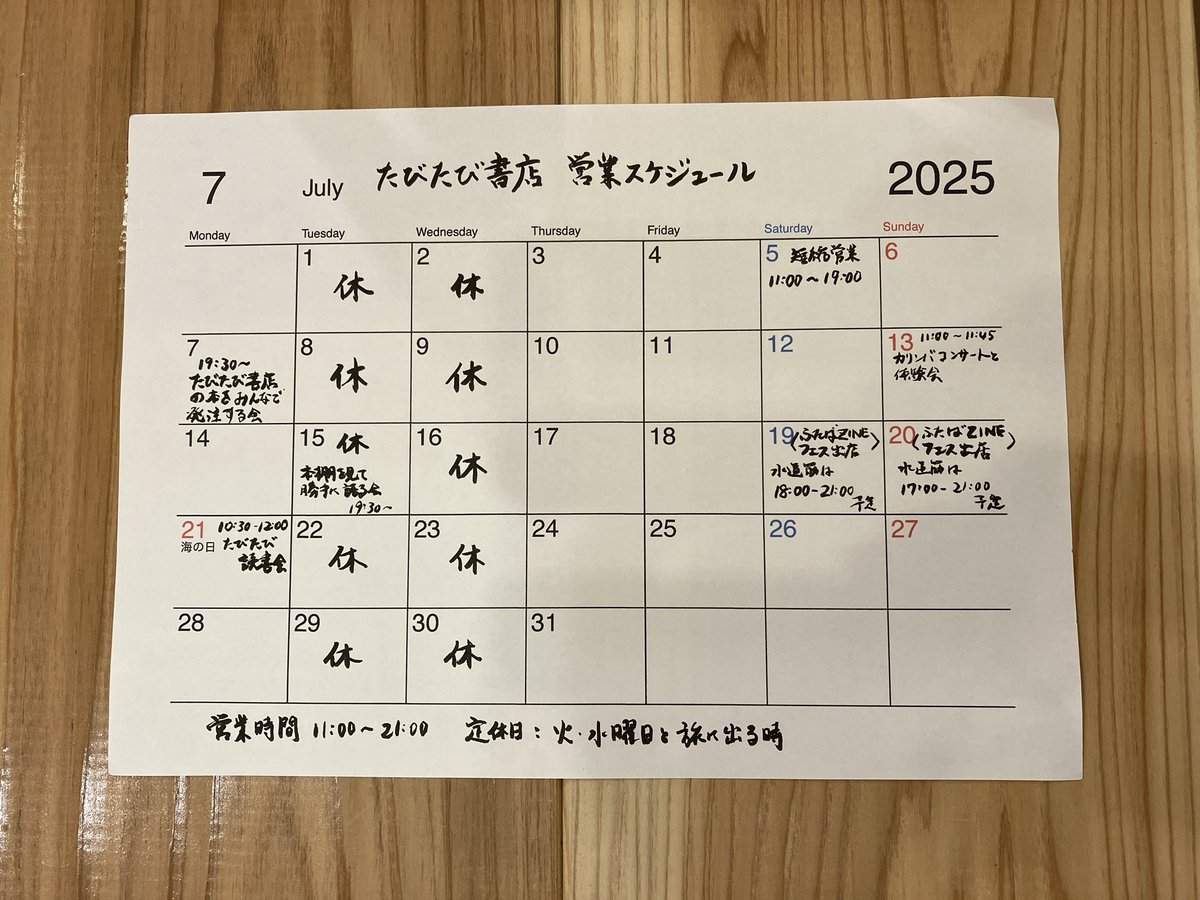 7 July たびたび書店 営業スケジュール 2025
Monday Tuesday Wednesday Thursday Friday Saturday Sunday
1 休
2 休
3
4
5 短縮営業
11:00〜19:00
6
7
19:30〜
たびたび書店
の本をみんなで
発注する会
8 休
9 休
10
11
12
13 11:00〜11:45
カリンバコンサートと
体験会
14
15 休
本棚を見て
勝手に語る会
19:30〜
16 休
17
18
19 (ふたばZINE
フェス出店)
水道筋は
18:00-21:00
予定
20 (ふたばZINE
フェス出店)
水道筋は
17:00-21:00
予定
21 10:30-12:00
海の日 たびたび
読書会
22 休
23 休
24
25
26
27
28
29 休
30 休
31
営業時間 11:00〜21:00 定休日:火・水曜日と旅に出る時